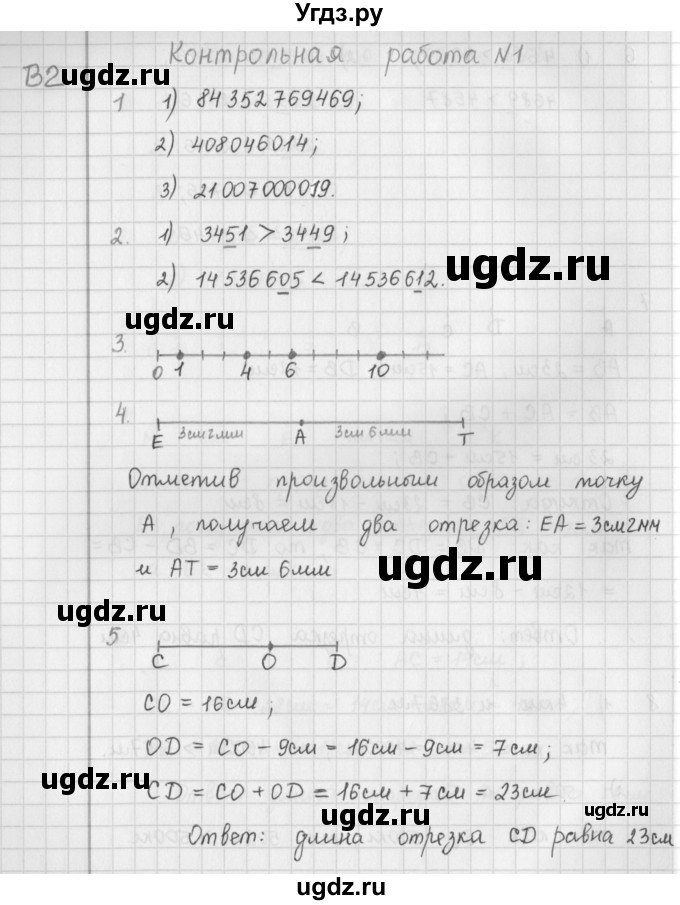 Угдз.ру
Контрольная работа N1
В2
1 1) 84352769469;
2) 408046014;
3) 21007000019.
2. 1) 3451 > 3449;
2) 14536605 < 14536612.
3.
0 1 4 6 10
4.
3см2мм 3см 6мм
E A T
Отметив произвольным образом точку
А, получаем два отрезка: EA = 3см2мм
и AT = 3см 6мм
5
C O D
CO = 16см;
OD = CO - 9см = 16см - 9см = 7см;
CD = CO + OD = 16см + 7см = 23см.
Ответ: длина отрезка CD равна 23см
ugdz.ru
ugdz.ru
ugdz.ru
ugdz.ru
ugdz.ru
ugdz.ru
ugdz.ru
ugdz.ru
ugdz.ru
ugdz.ru
ugdz.ru